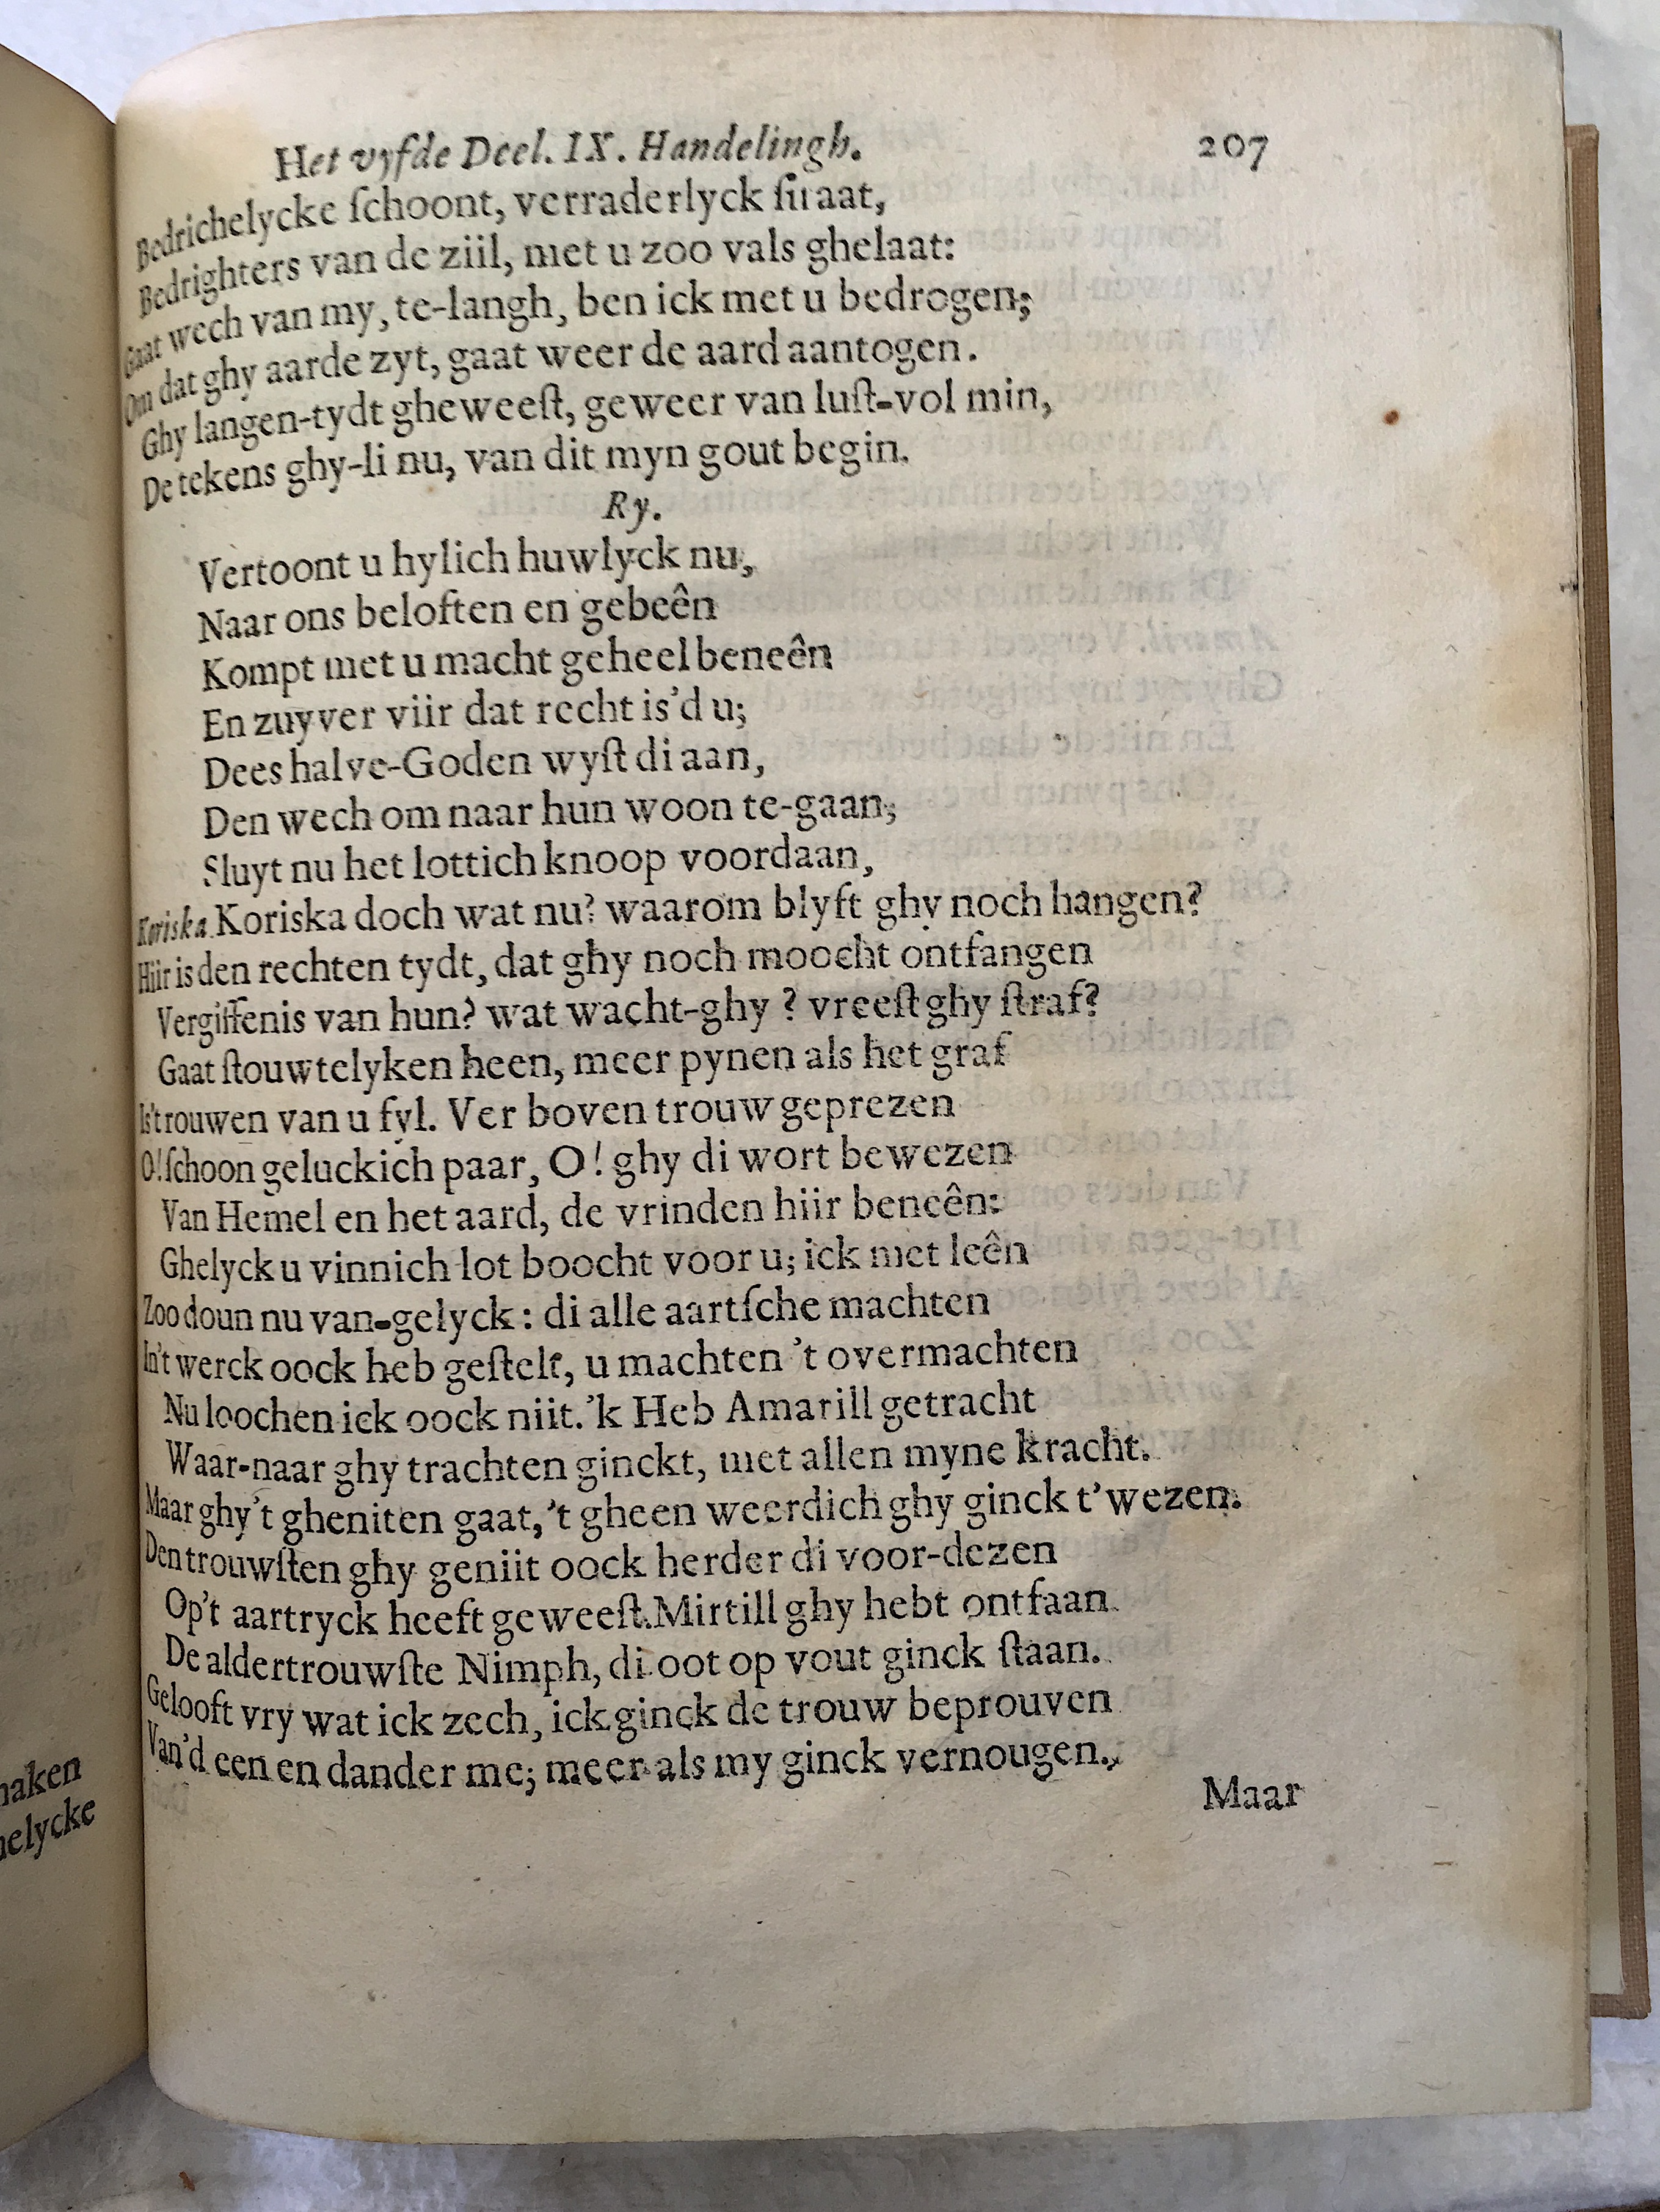 Het vyfde Deel. IX. Handelingh. 207
Bedrichelycke ſchoont, verraderlyck ſiraat,
Bedrighters van de ziil, met u zoo vals ghelaat:
Gaat wech van my, te-langh, ben ick met u bedrogen;
Om dat ghy aarde zyt, gaat weer de aard aantogen.
Ghy langen-tydt gheweeſt, geweer van luſt-vol min,
De tekens ghy-li nu, van dit myn gout begin.
Ry.
Vertoont u hylich huwlyck nu,
Naar ons beloften en gebeên
Kompt met u macht geheel beneên
En zuyver viir dat recht is'd u;
Dees halve-Goden wyſt di aan,
Den wech om naar hun woon te-gaan;
Sluyt nu het lottich knoop voordaan,
Koriska. Koriska doch wat nu? waarom blyft ghy noch hangen?
Hiir is den rechten tydt, dat ghy noch moocht ontfangen
Vergiffenis van hun? wat wacht-ghy ? vreeſt ghy ſtraf?
Gaat ſtouwtelyken heen, meer pynen als het graf
Is't rouwen van u fyl. Ver boven trouw geprezen
O! ſchoon geluckich paar, O! ghy di wort bewezen
Van Hemel en het aard, de vrinden hiir beneên:
Ghelyck u vinnich lot boocht voor u; ick met leên
Zoo doun nu van-gelyck : di alle aartſche machten
In't werck oock heb geſtelt, u machten 't overmachten
Nu loochen ick oock niit. 'k Heb Amarill getracht
Waar-naar ghy trachten ginckt, met allen myne kracht.
Maar ghy't gheniten gaat, 't gheen weerdich ghy ginck t'wezen.
Den trouwſten ghy geniit oock herder di voor-dezen
Op't aartryck heeft geweeſt. Mirtill ghy hebt ontfaan
De aldertrouwſte Nimph, di oot op vout ginck ſtaan.
Gelooft vry wat ick zech, ick ginck de trouw beprouven
Van'd een en dander me; meer als my ginck vernougen.
Maar
naken
helycke